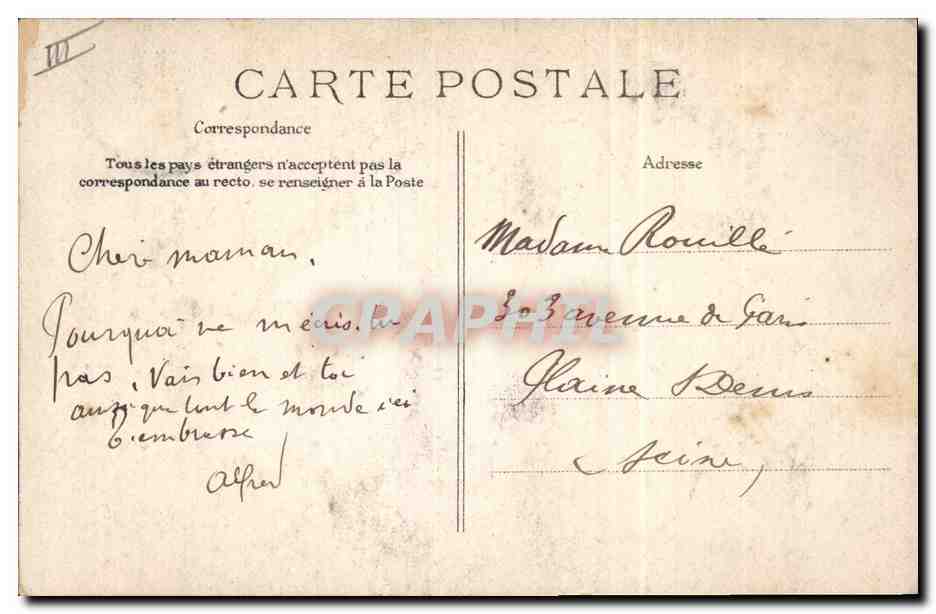 III
CARTE POSTALE
Correspondance
Tous les pays étrangers n'acceptent pas la
correspondance au recto, se renseigner á la Poste
Adresse
Cher maman,
Pourquoi ne mécris tu
pas, Vais bien et toi
ainsi que tout le monde ici
t'embrasse
Alfred
Madame Rouillé
303 avenue de Paris
Plaine St Denis
Seine,
CPAPHIL